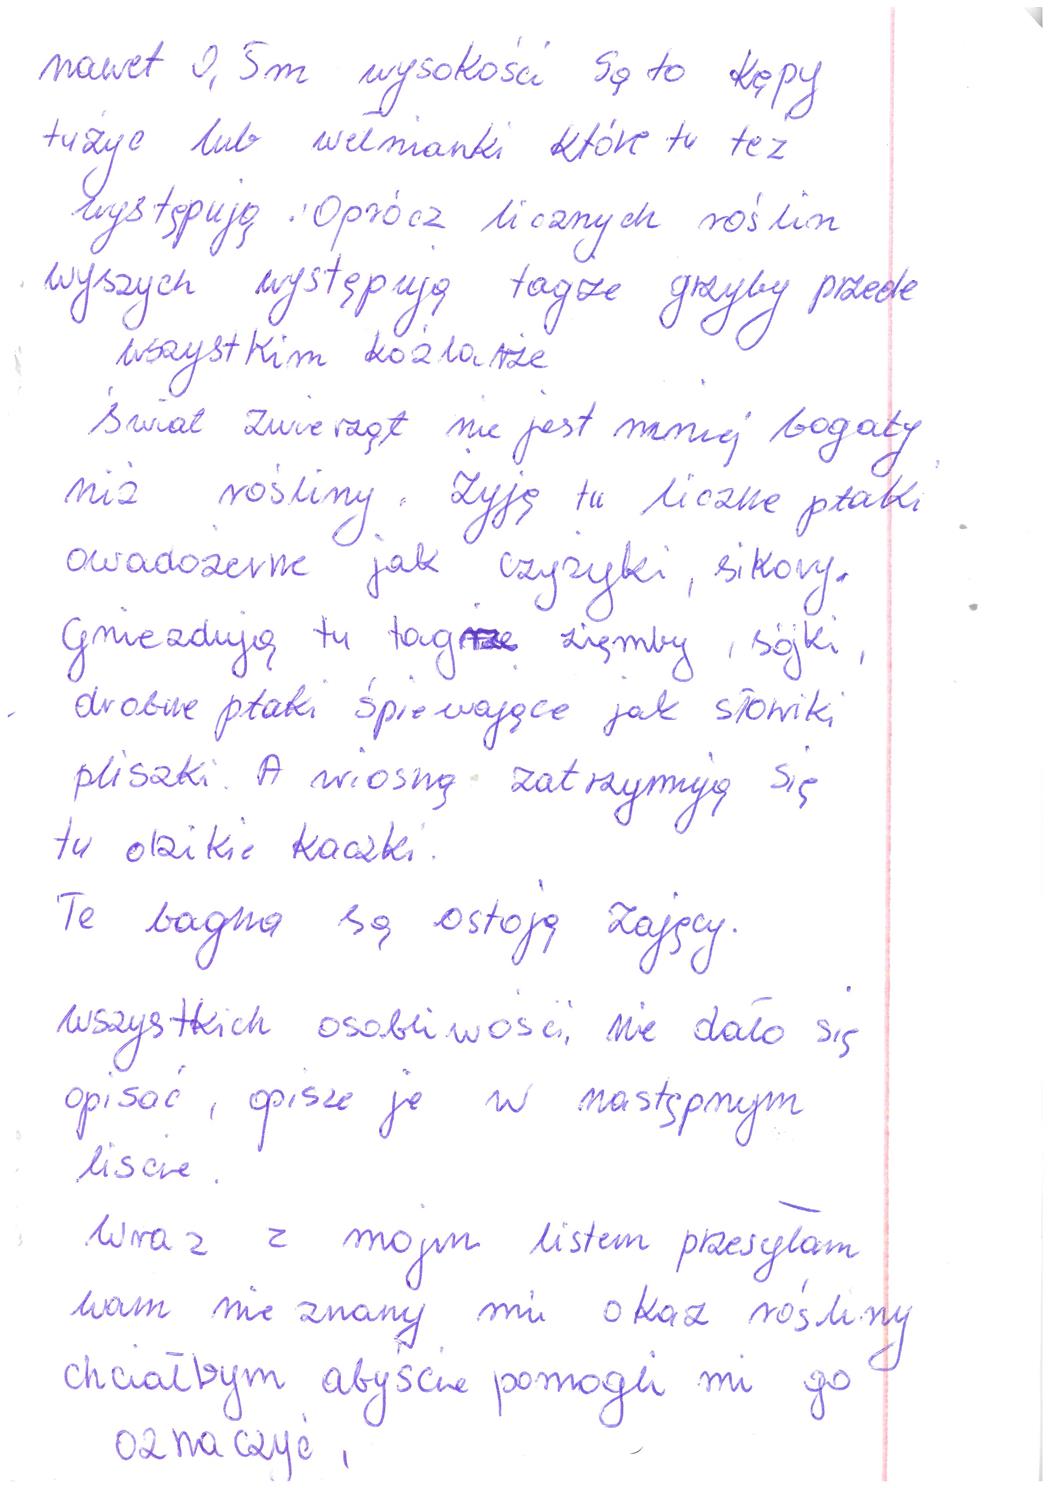 nawet 0,5m wysokości Są to kępy
tużyc lub wełnianki które tu też
występują. Oprócz licznych roślin
wyszych występują tagże grzyby przede
wszystkim koźlarze
świat zwierząt nie jest mniej bogaty
niż rośliny. Żyją tu liczne ptaki
owadożerne jak czyżyki, sikory.
Gnieżdżują tu tagrze zięmby, sójki,
drobne ptaki śpiewające jak słowiki
pliszki. A wiosną zatrzymują się
tu dzikie kaczki.
Te bagna są ostoją zajęcy.
wszystkich osobliwości, nie dało się
opisać, opisze je w następnym
liscie.
Wraz z mojm listem przesyłam
wam nie znany mi okaz rośliny
chciałbym abyście pomogli mi go
oznaczyć,